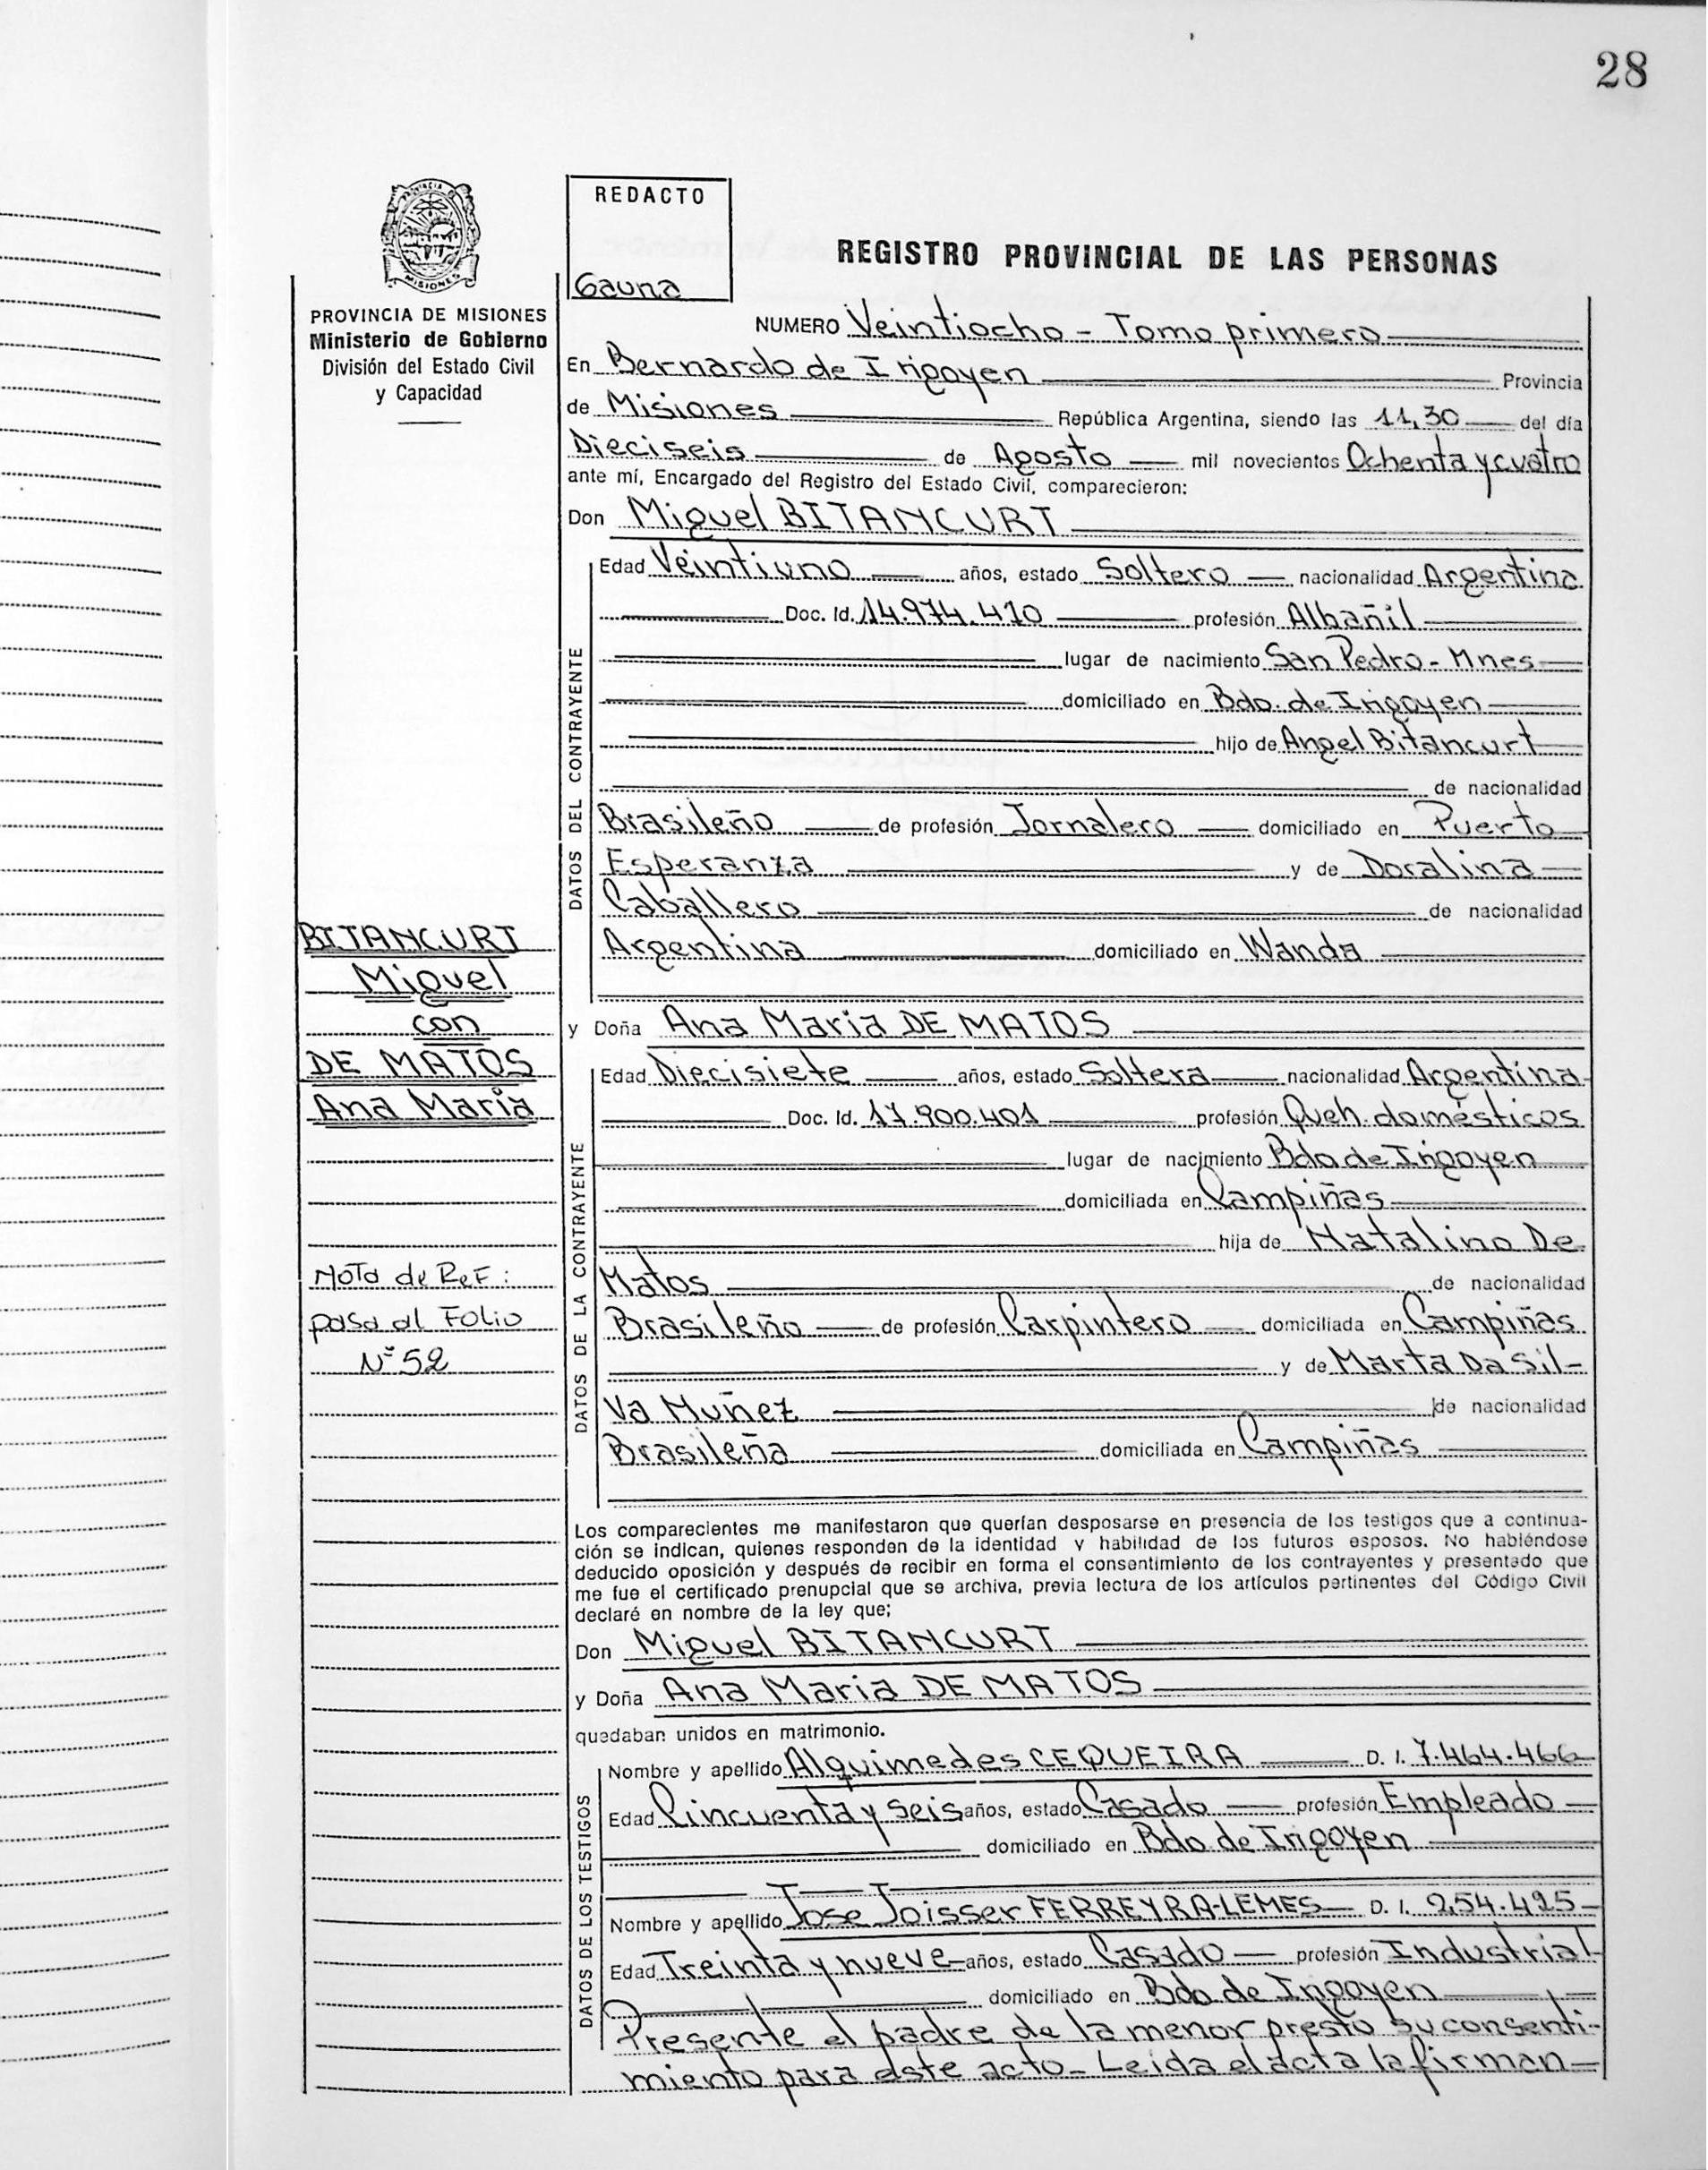 28
REDACTO
Gauna
REGISTRO PROVINCIAL DE LAS PERSONAS
PROVINCIA DE MISIONES
Ministerio de Gobierno
División del Estado Civil
y Capacidad
NUMERO Veintiocho - Tomo primero
En Bernardo de Irigoyen Provincia
de Misiones República Argentina, siendo las 11,30 del día
Dieciseis de Agosto mil novecientos Ochenta y cuatro
ante mí, Encargado del Registro del Estado Civil, comparecieron:
Don Miguel BITANCURT
DATOS DEL CONTRAYENTE
Edad Veintiuno años, estado Soltero nacionalidad Argentina
Doc. Id. 14.974.410 profesión Albañil
lugar de nacimiento San Pedro - Mnes
domiciliado en Bdo. de Irigoyen
hijo de Angel Bitancurt
de nacionalidad
Brasileño de profesión Jornalero domiciliado en Puerto
Esperanza y de Doralina
Caballero de nacionalidad
Argentina domiciliado en Wanda
BITANCURT
Miguel
con
DE MATOS
Ana Maria
y Doña Ana Maria DE MATOS
DATOS DE LA CONTRAYENTE
Edad Diecisiete años, estado Soltera nacionalidad Argentina
Doc. Id. 17.900.401 profesión Queh. domésticos
lugar de nacimiento Bdo de Irigoyen
domiciliada en Campiñas
hija de Natalino De
Matos de nacionalidad
Brasileño de profesión Carpintero domiciliada en Campiñas
y de Marta Da Sil-
va Muñez de nacionalidad
Brasileña domiciliada en Campiñas
Nota de Ref:
pasa al Folio
N° 52
Los comparecientes me manifestaron que querían desposarse en presencia de los testigos que a continua-
ción se indican, quienes responden de la identidad y habilidad de los futuros esposos. No habiéndose
deducido oposición y después de recibir en forma el consentimiento de los contrayentes y presentado que
me fue el certificado prenupcial que se archiva, previa lectura de los artículos pertinentes del Código Civil
declaré en nombre de la ley que;
Don Miguel BITANCURT
y Doña Ana Maria DE MATOS
quedaban unidos en matrimonio.
DATOS DE LOS TESTIGOS
Nombre y apellido Alquimedes CEQUEIRA D. I. 7.464.466
Edad Cincuenta y seis años, estado Casado profesión Empleado
domiciliado en Bdo de Irigoyen
Nombre y apellido Jose Joisser FERREYRA-LEMES D. I. 254.425
Edad Treinta y nueve años, estado Casado profesión Industrial
domiciliado en Bdo de Irigoyen
Presente el padre de la menor presto su consenti-
miento para este acto - Leida el acta la firman